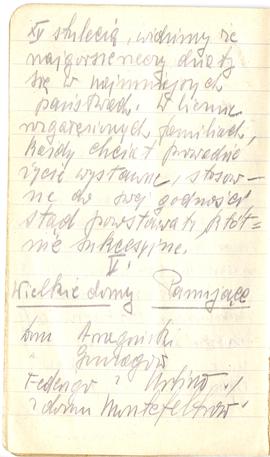 XV stulecia, widzimy że
najgorsze rzeczy działy
się w najmniejszych
państwach. W licznie
rozgałęzionych familiach,
każdy chciał prowadzić
życie wystawne, stosow-
ne do swej godności,
stąd powstawały kłót-
nie sukcesyjne.
V.
Wielkie domy Panujące
Dom Aragoński
" Gonzagów
Federigo i Urbino
z domu Montefeltrów